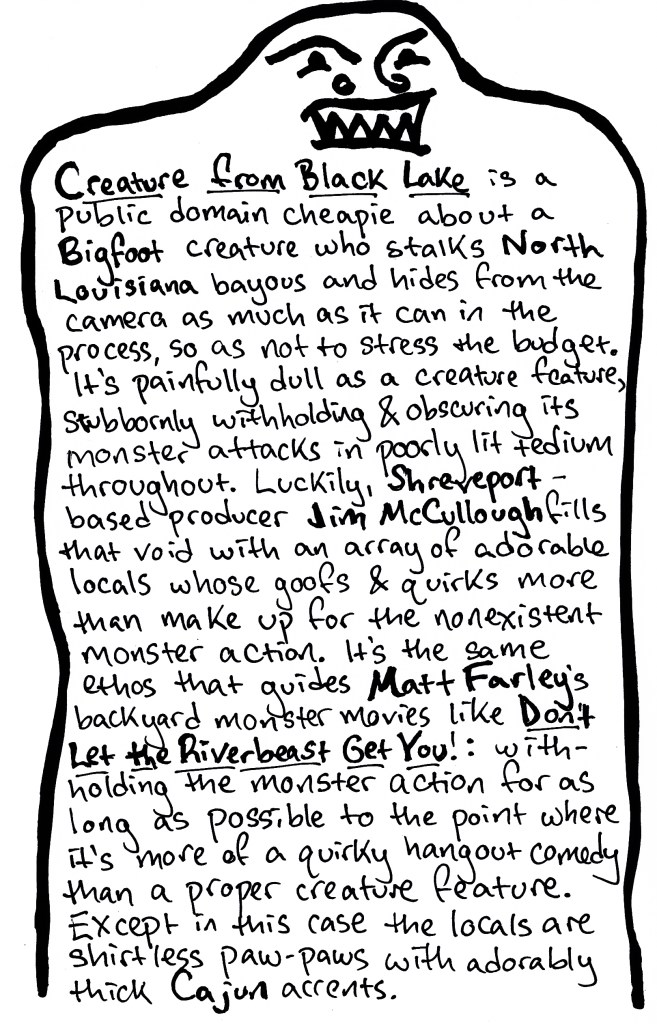 Creature from Black Lake is a
public domain cheapie about a
Bigfoot creature who stalks North
Louisiana bayous and hides from the
camera as much as it can in the
process, so as not to stress the budget.
It's painfully dull as a creature feature,
stubbornly withholding & obscuring its
monster attacks in poorly lit tedium
throughout. Luckily, Shreveport-
based producer Jim McCullough fills
that void with an array of adorable
locals whose goofs & quirks more
than make up for the nonexistent
monster action. It's the same
ethos that guides Matt Farley's
backyard monster movies like Don't
Let the Riverbeast Get You!: with-
holding the monster action for as
long as possible to the point where
it's more of a quirky hangout comedy
than a proper creature feature.
Except in this case the locals are
shirtless paw-paws with adorably
thick Cajun accents.